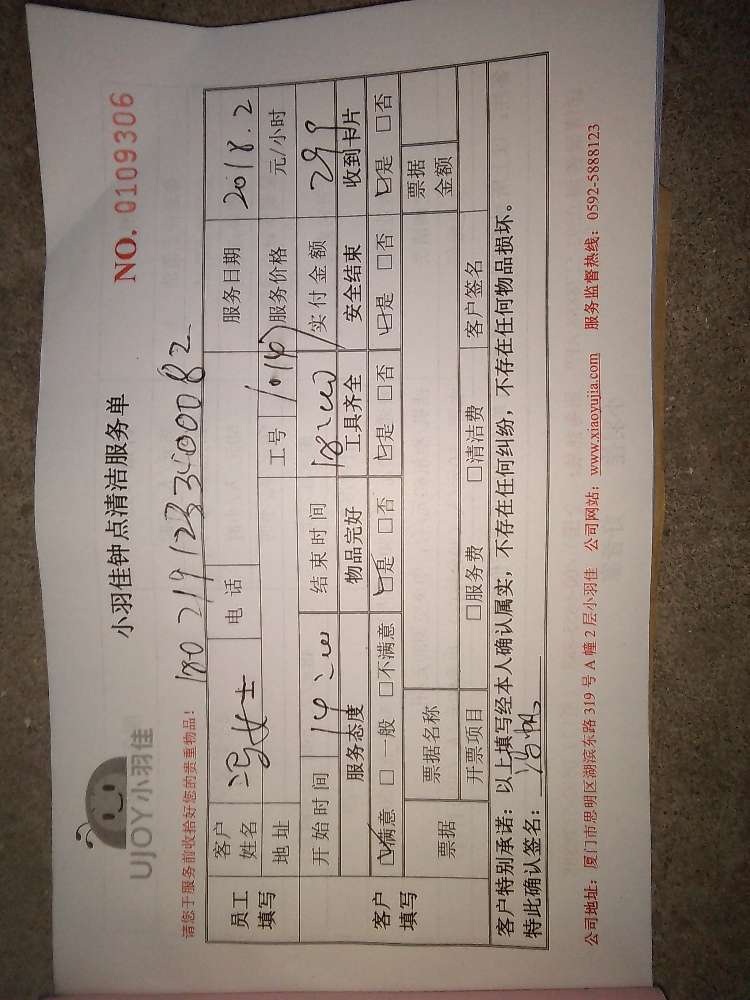 UJOY小羽佳
小羽佳钟点清洁服务单
NO. 0109306
请您于服务前收拾好您的贵重物品!
180219123400082
员工填写 客户姓名 冯女士 电话 服务日期 2018.2
地址 工号 服务价格 元/小时
客户填写 开始时间 14:00 结束时间 18:00 实付金额 299
服务态度 物品完好 工具齐全 安全结束 收到卡片
☑满意 □一般 □不满意 ☑是 □否 ☑是 □否 ☑是 □否 ☑是 □否
票据 票据名称 票据金额
开票项目 □服务费 □清洁费 客户签名
客户特别承诺:以上填写经本人确认属实,不存在任何纠纷,不存在任何物品损坏。
特此确认签名:
公司地址:厦门市思明区湖滨东路319号A幢2层小羽佳 公司网站:www.xiaoyujia.com 服务监督热线:0592-5888123